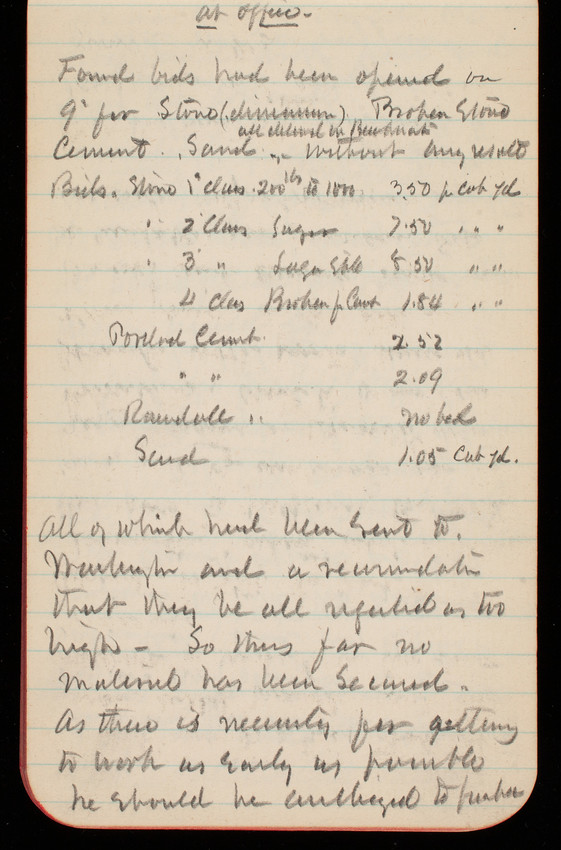 at office -
Found bids had been opened on
9" for Stone (dimension) Broken Stone
all delivered in
Cement. Sand - without any result
Bids. Stone 1" class 200 lbs to 1000 3.50 p cub yd
" 2" Class Larger 7.50 " "
" 3 " Large 8.50 " "
4 class Broken p Cant 1.84 " "
Portland Cement 2.52
" " 2.09
Rosendale " no bid
Sand 1.05 Cub yd.
All of which had been sent to
Washington and a recommendation
that they be all rejected as too
high - So thus far no
material has been secured.
As there is necessity for getting
to work as early as possible
he should be authorized to purchase